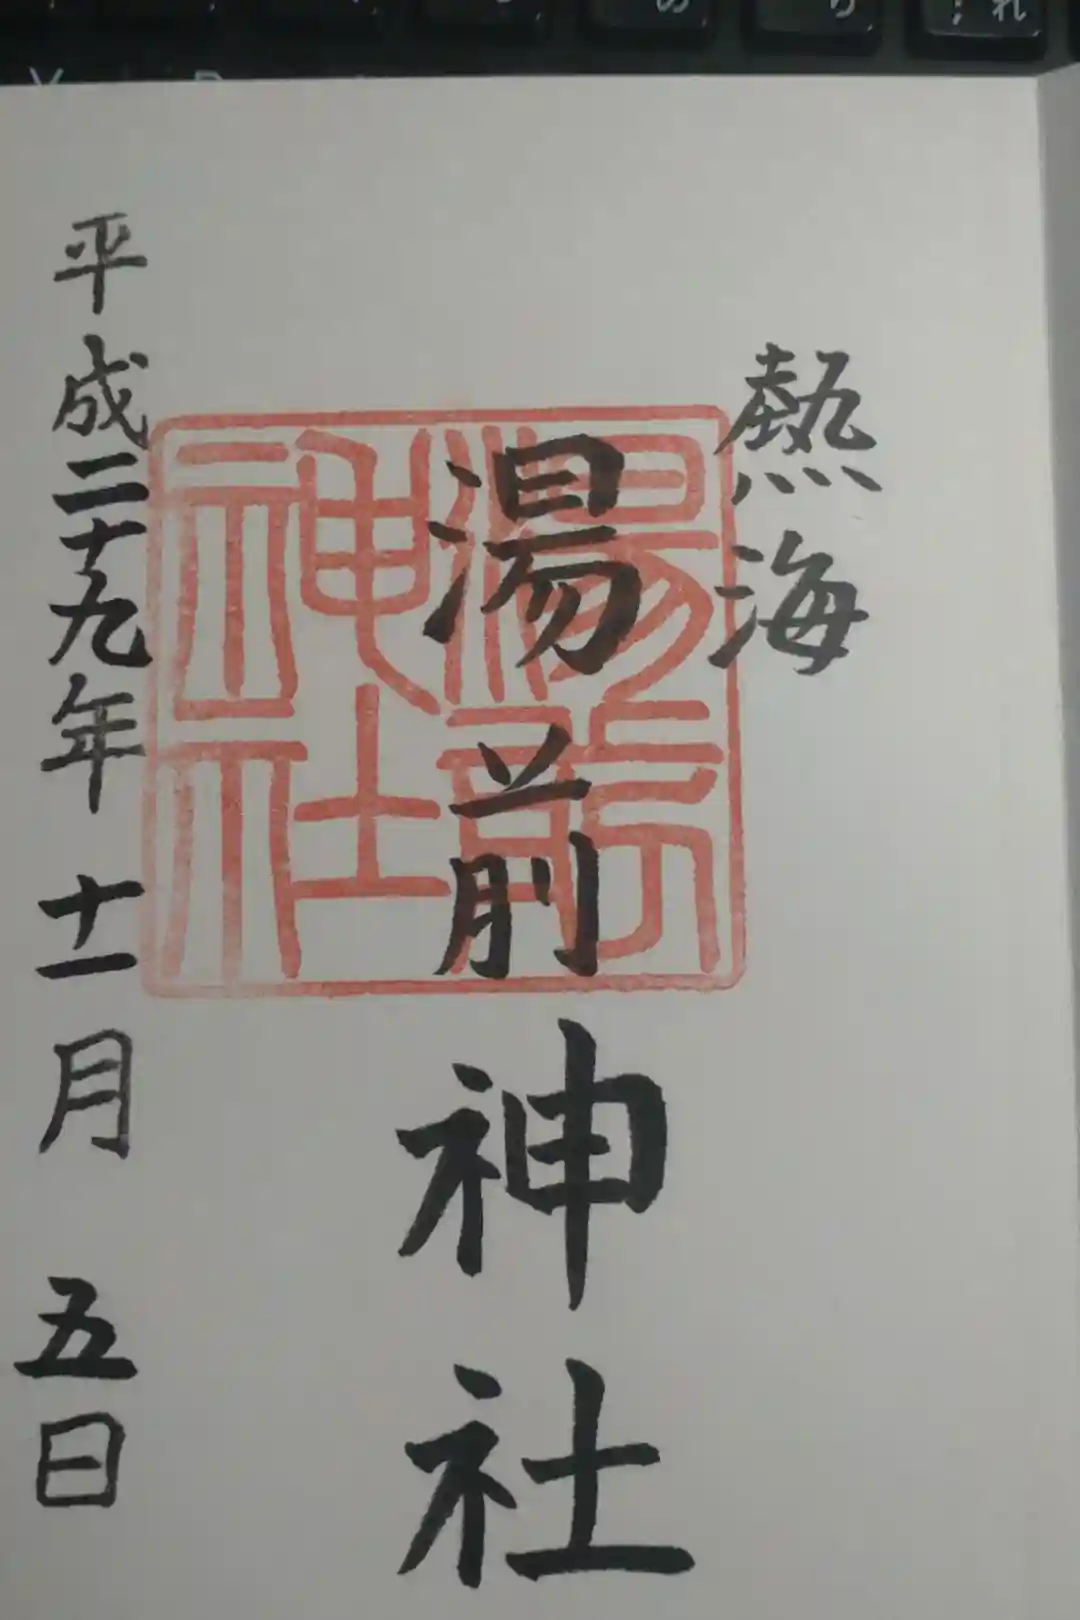 熱海
湯前神社
湯前
神社
平成二十九年十一月五日
の
り
れ